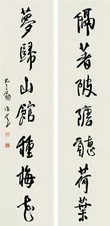 隔著陂塘聽荷葉
夢歸山館種梅花